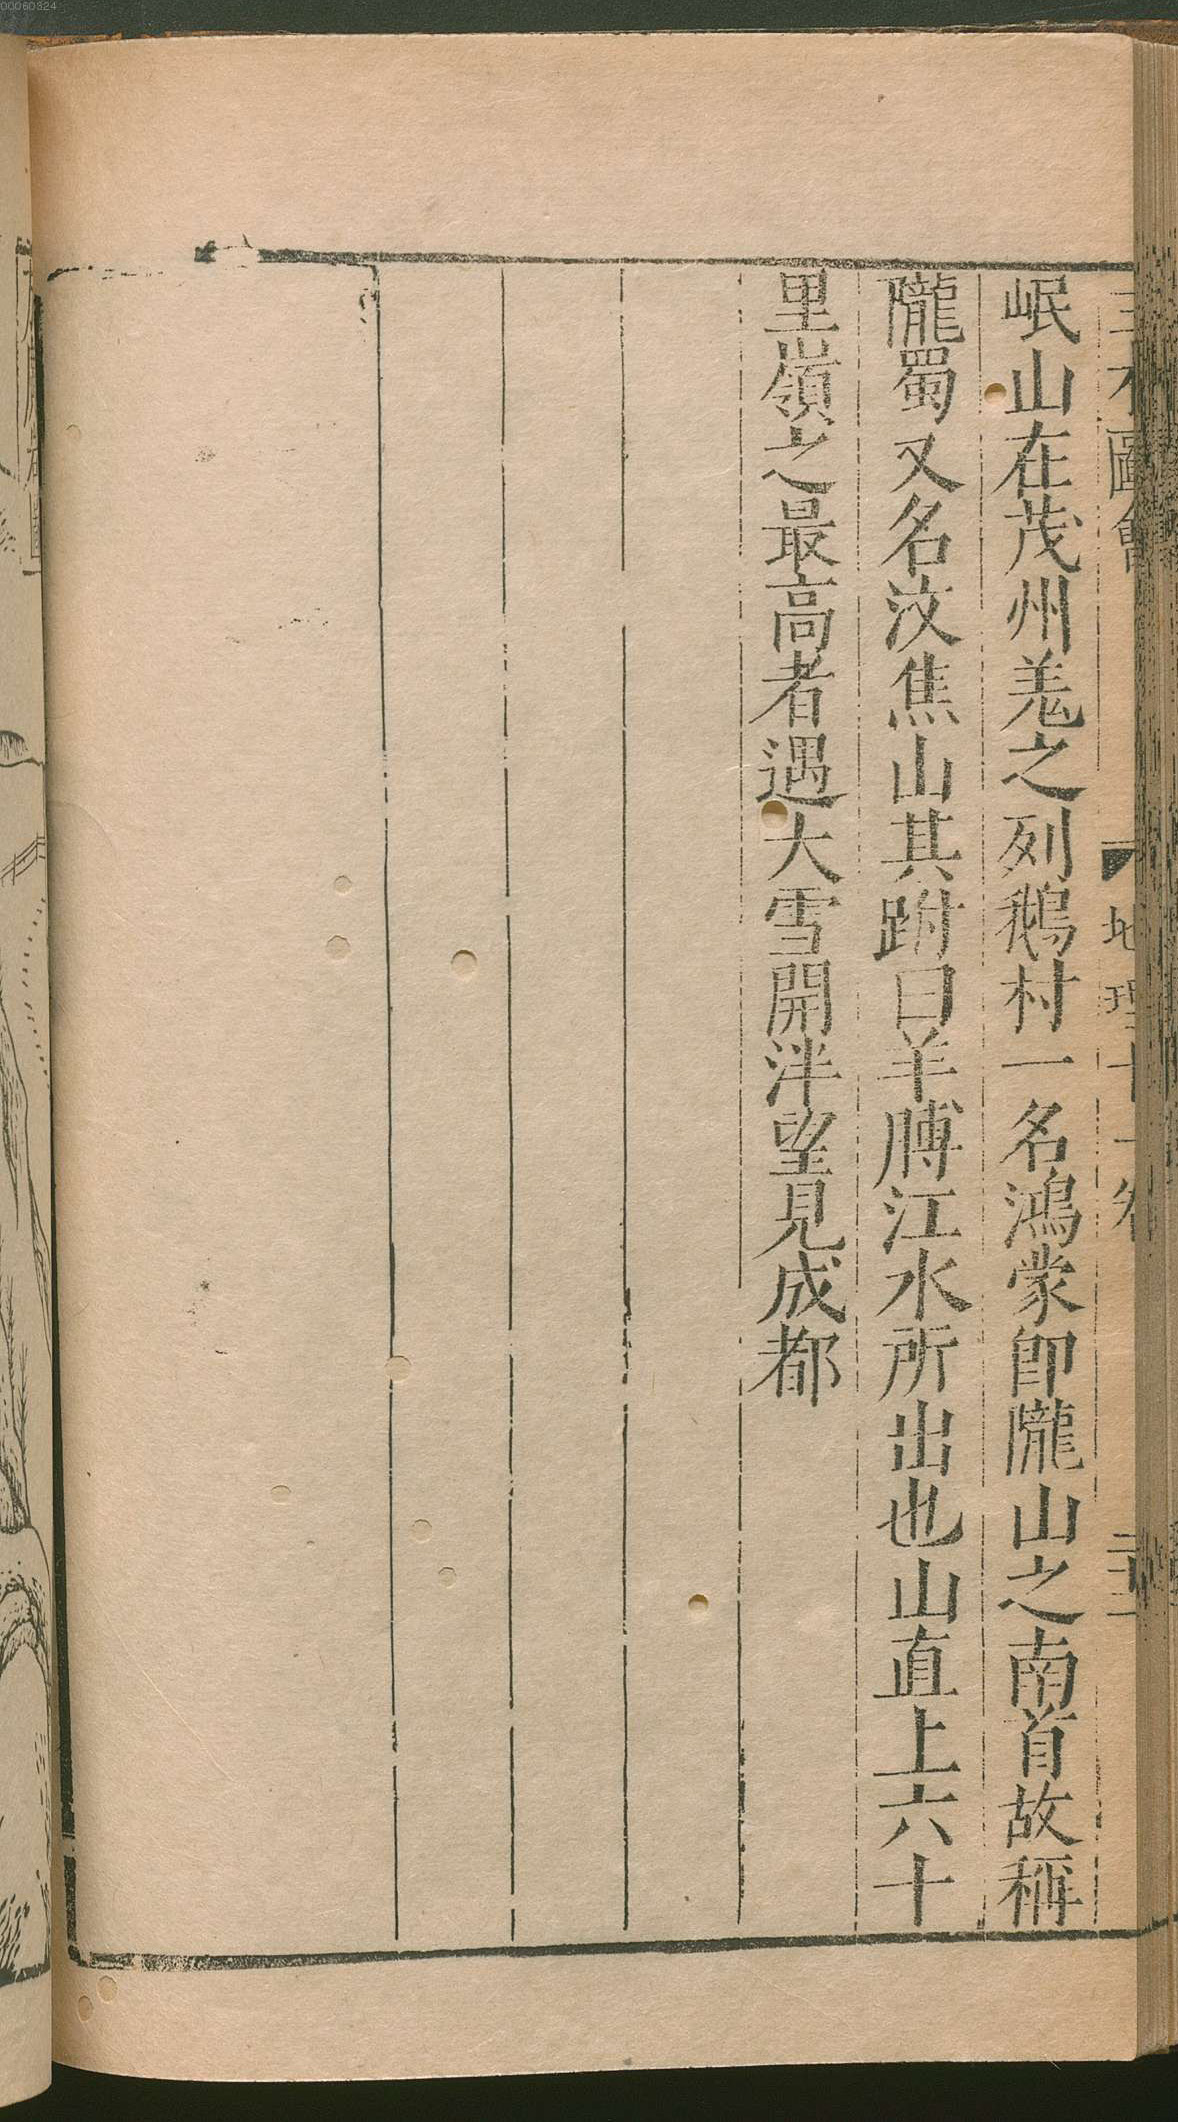 岷山在茂州羗之列鵝村一名鴻蒙卽隴山之南首故稱
隴蜀又名汶焦山其跗曰羊膊江水所出也山直上六十
里嶺之最高者遇大雪開泮望見成都
圖會
地理十
00060324